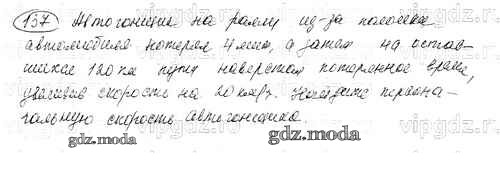 137 Автогонщик на ралли из-за поломки
автомобиля потерял 4 мин, а затем на остав-
шихся 120 км пути наверстал потерянное время,
увеличив скорость на 20 км/ч. Найдите первона-
чальную скорость автогонщика.
gdz.moda
gdz.moda
vipgdz.ru
vipgdz.ru